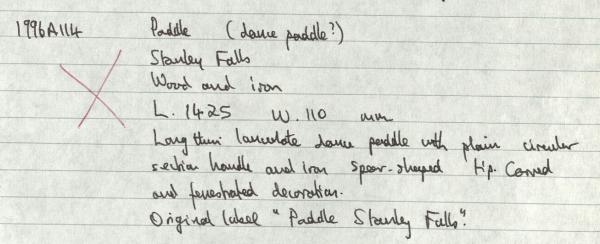 1996A114 Paddle (dance paddle?)
Stanley Falls
Wood and iron
L. 1425 W. 110 mm
Long thin lanceolate dance paddle with plain circular
section handle and iron spear-shaped tip. Carved
and fenestrated decoration.
Original label "Paddle Stanley Falls".